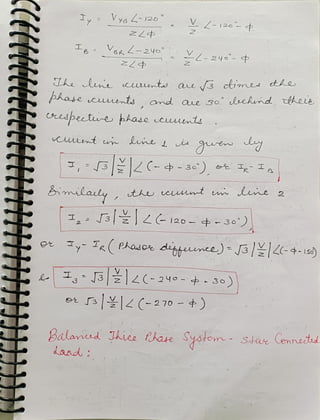 I_Y = V_YB∠-120° / Z∠ϕ = V/Z ∠-120° - ϕ
I_B = V_BR∠-240° / Z∠ϕ = V/Z ∠-240° - ϕ
The line currents are √3 times the
phase currents, and are 30° behind their
respective phase currents.
current in line 1 is given by
I₁ = √3 |V/Z| ∠(-ϕ-30°), or I_R - I_B
Similarly, the current in line 2
I₂ = √3 |V/Z| ∠(-120 - ϕ - 30°)
or I_Y - I_R (Phasor difference) = √3 |V/Z| ∠(-ϕ-150)
& I₃ = √3 |V/Z| ∠(-240 - ϕ - 30)
or √3 |V/Z| ∠(-270 - ϕ)
Balanced Three Phase System - Star Connected
Load: